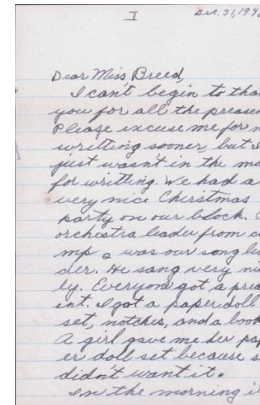 I Dec. 31, 194
Dear Miss Breed,
I can't begin to than
you for all the presen
Please excuse me for n
writting sooner but I
just wasn't in the mo
for writting. We had a
very nice Christmas
party on our block.
orchestra leader from ca
mp 2 was our song lea
der. He sang very nice
ly. Everyone got a pres
ent. I got a paper doll
set, notches, and a book
A girl gave me her pap
er doll set because s
didn't want it.
In the morning i